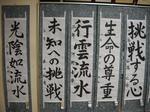 挑戦する心
生命の尊重
行雲流水
未知への挑戦
光陰如流水